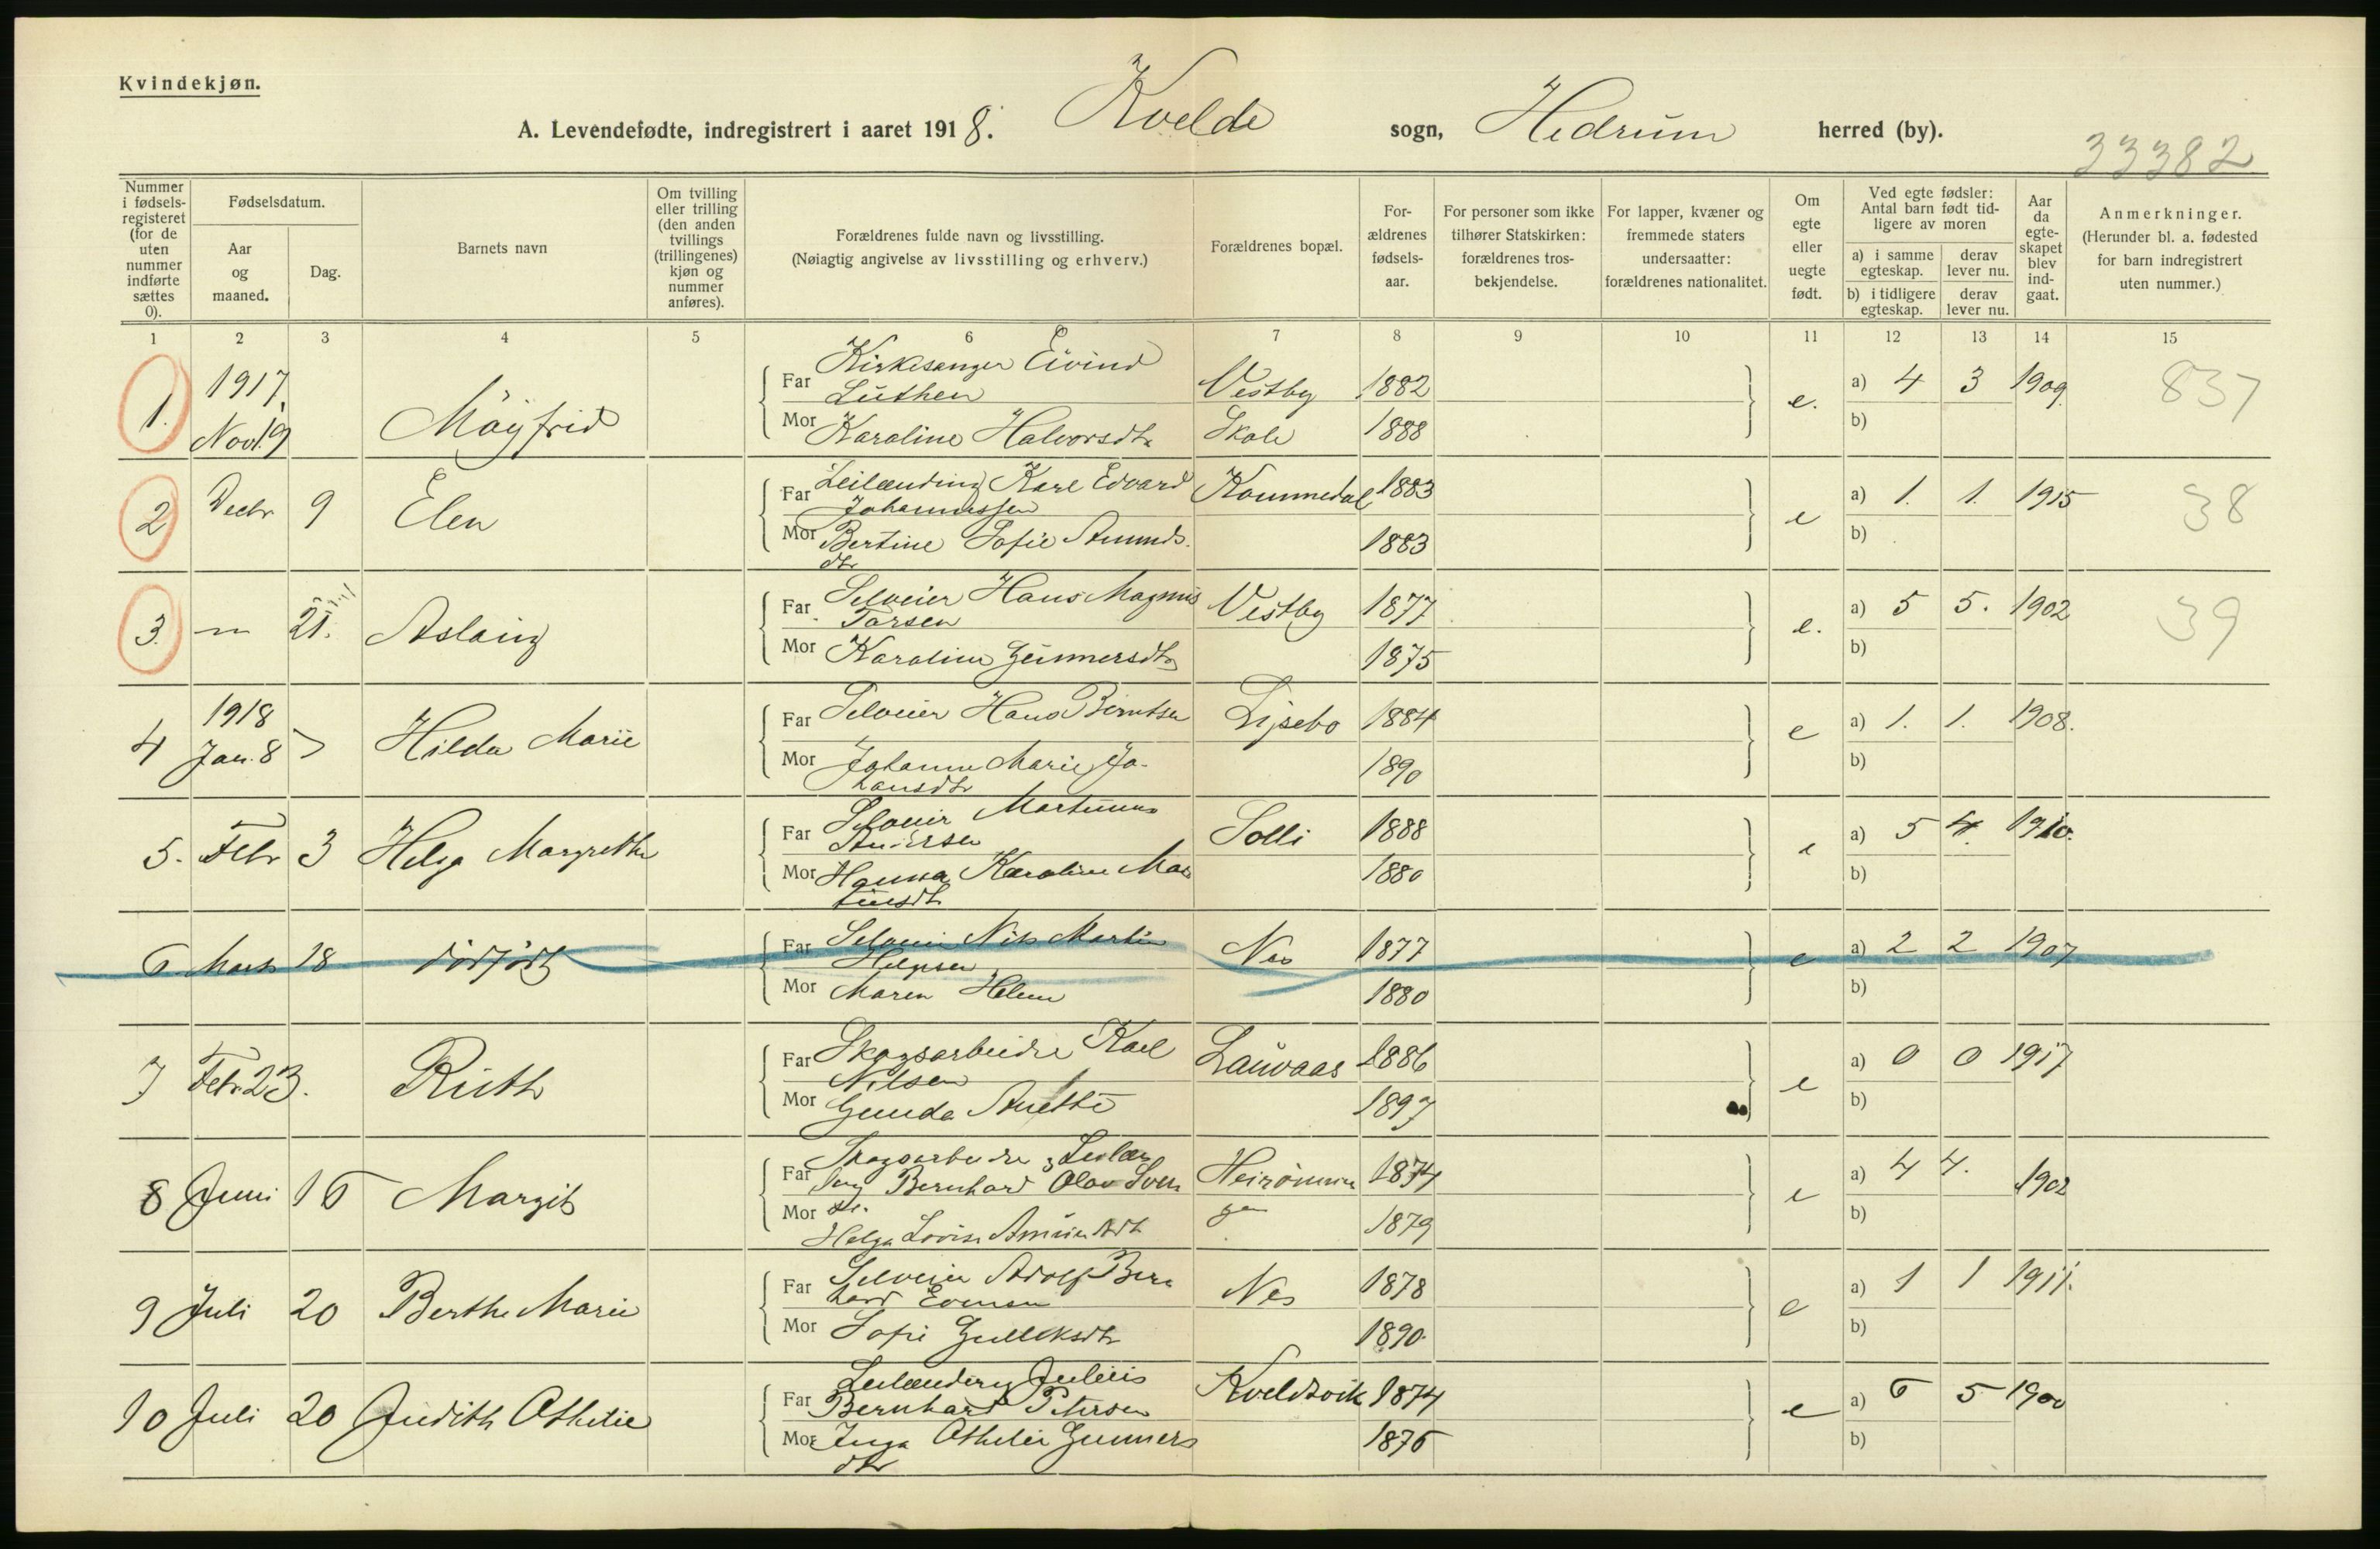 Kvindekjøn.
A. Levendefødte, indregistrert i aaret 1918. Kvelde sogn, Hedrum herred (by).
33382
Nummer i fødsels-registeret (for de uten nummer indførte sættes 0).
Fødselsdatum.
Aar og maaned.
Dag.
Barnets navn
Om tvilling eller trilling (den anden tvillings (trillingenes) kjøn og nummer anføres).
Forældrenes fulde navn og livsstilling.
(Nøiagtig angivelse av livsstilling og erhverv.)
Forældrenes bopæl.
For-ældrenes fødsels-aar.
For personer som ikke tilhører Statskirken: forældrenes tros-bekjendelse.
For lapper, kvæner og fremmede staters undersaatter: forældrenes nationalitet.
Om egte eller uegte født.
Ved egte fødsler: Antal barn født tid-ligere av moren
a) i samme egteskap. derav lever nu.
b) i tidligere egteskap. derav lever nu.
Aar da egte-skapet blev ind-gaat.
Anmerkninger.
(Herunder bl. a. fødested for barn indregistrert uten nummer.)
1 2 3 4 5 6 7 8 9 10 11 12 13 14 15
1. 1917, Novbr. 19 Möyfrid
Far Kirkesanger Eivind Luthen Vestby 1882 e. a) 4 3 1909 837
Mor Karoline Halvorsdtr Skole 1888 b)
2 Decbr 9 Elen
Far Leilænding Karl Edvard Johannessen Kommedal 1883 e a) 1. 1. 1915 38
Mor Bertine Sofie Amunds.dtr 1883 b)
3. — 21. Aslaug
Far Selveier Hans Magnus Tarsen Vestby 1877 e. a) 5 5. 1902 39
Mor Karoline Gunnersdtr 1875 b)
4 1918 Jan. 8 Hilda Marie
Far Selveier Hans Berntsen Lysebo 1884 e a) 1. 1. 1908.
Mor Johanne Marie Johansdtr 1890 b)
5. Febr 3 Helga Margrethe
Far Selveier Martinus Andersen Solli 1888 e a) 5 4. 1910.
Mor Hanna Karoline Martinsdtr 1880 b)
6 Mars 18 dödfödt
Far Selveier Nils Martin Helgesen Nes 1877 e a) 2 2 1907
Mor Maren Helene 1880 b)
7 Febr. 23. Ruth
Far Skogsarbeider Karl Nilsen Lauvaas 1886 e a) 0 0 1917
Mor Gunda Anette 1897 b)
8 Juni 16 Margit
Far Skogsarbeider Bernhard Olav 1874 e a) 4 4. 1902
Mor Helga Lovise Amundsdtr 1879 b)
9 Juli 20 Berthe Marie
Far Selveier Adolf Bernhard Evensen Nes 1878 e a) 1 1 1911.
Mor Sofie Gulliksdtr 1890. b)
10 Juli 20 Judith Othelie
Far Leilænding Julius Bernhard Petersen Kveldsvik 1874 e a) 6 5 1900
Mor Inga Othelie Gunnersdtr 1876 b)